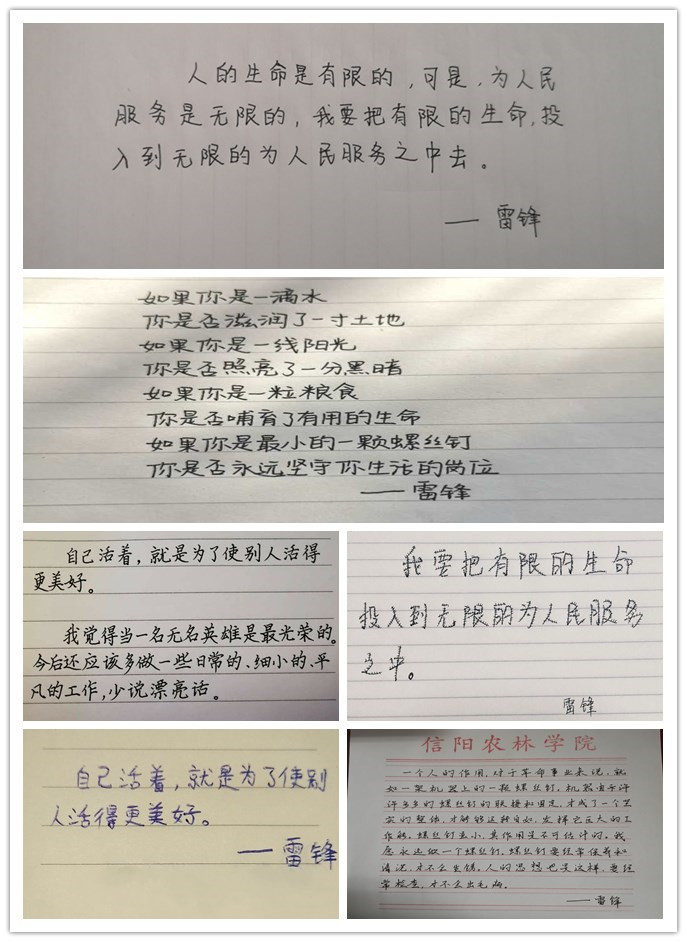 人的生命是有限的，可是，为人民
服务是无限的，我要把有限的生命，投
入到无限的为人民服务之中去。
——雷锋
如果你是一滴水
你是否滋润了一寸土地
如果你是一线阳光
你是否照亮了一分黑暗
如果你是一粒粮食
你是否哺育了有用的生命
如果你是最小的一颗螺丝钉
你是否永远坚守你生活的岗位
——雷锋
自己活着，就是为了使别人活得
更美好。
我觉得当一名无名英雄是最光荣的。
今后还应该多做一些日常的、细小的、平
凡的工作，少说漂亮话。
我要把有限的生命
投入到无限的为人民服务
之中。
雷锋
自己活着，就是为了使别
人活得更美好。
——雷锋
信阳农林学院
一个人的作用，对于革命事业来说，就
如一架机器上的一颗螺丝钉。机器由于许
许多多的螺丝钉的联接和固定，才成了一个坚
实的整体，才能够运转自如，发挥它巨大的工
作能。螺丝钉虽小，其作用是不可估计的。我
愿永远做一个螺丝钉。螺丝钉要经常保养和
清洗，才不会生锈。人的思想也是这样，要经
常检查，才不会出毛病。
——雷锋